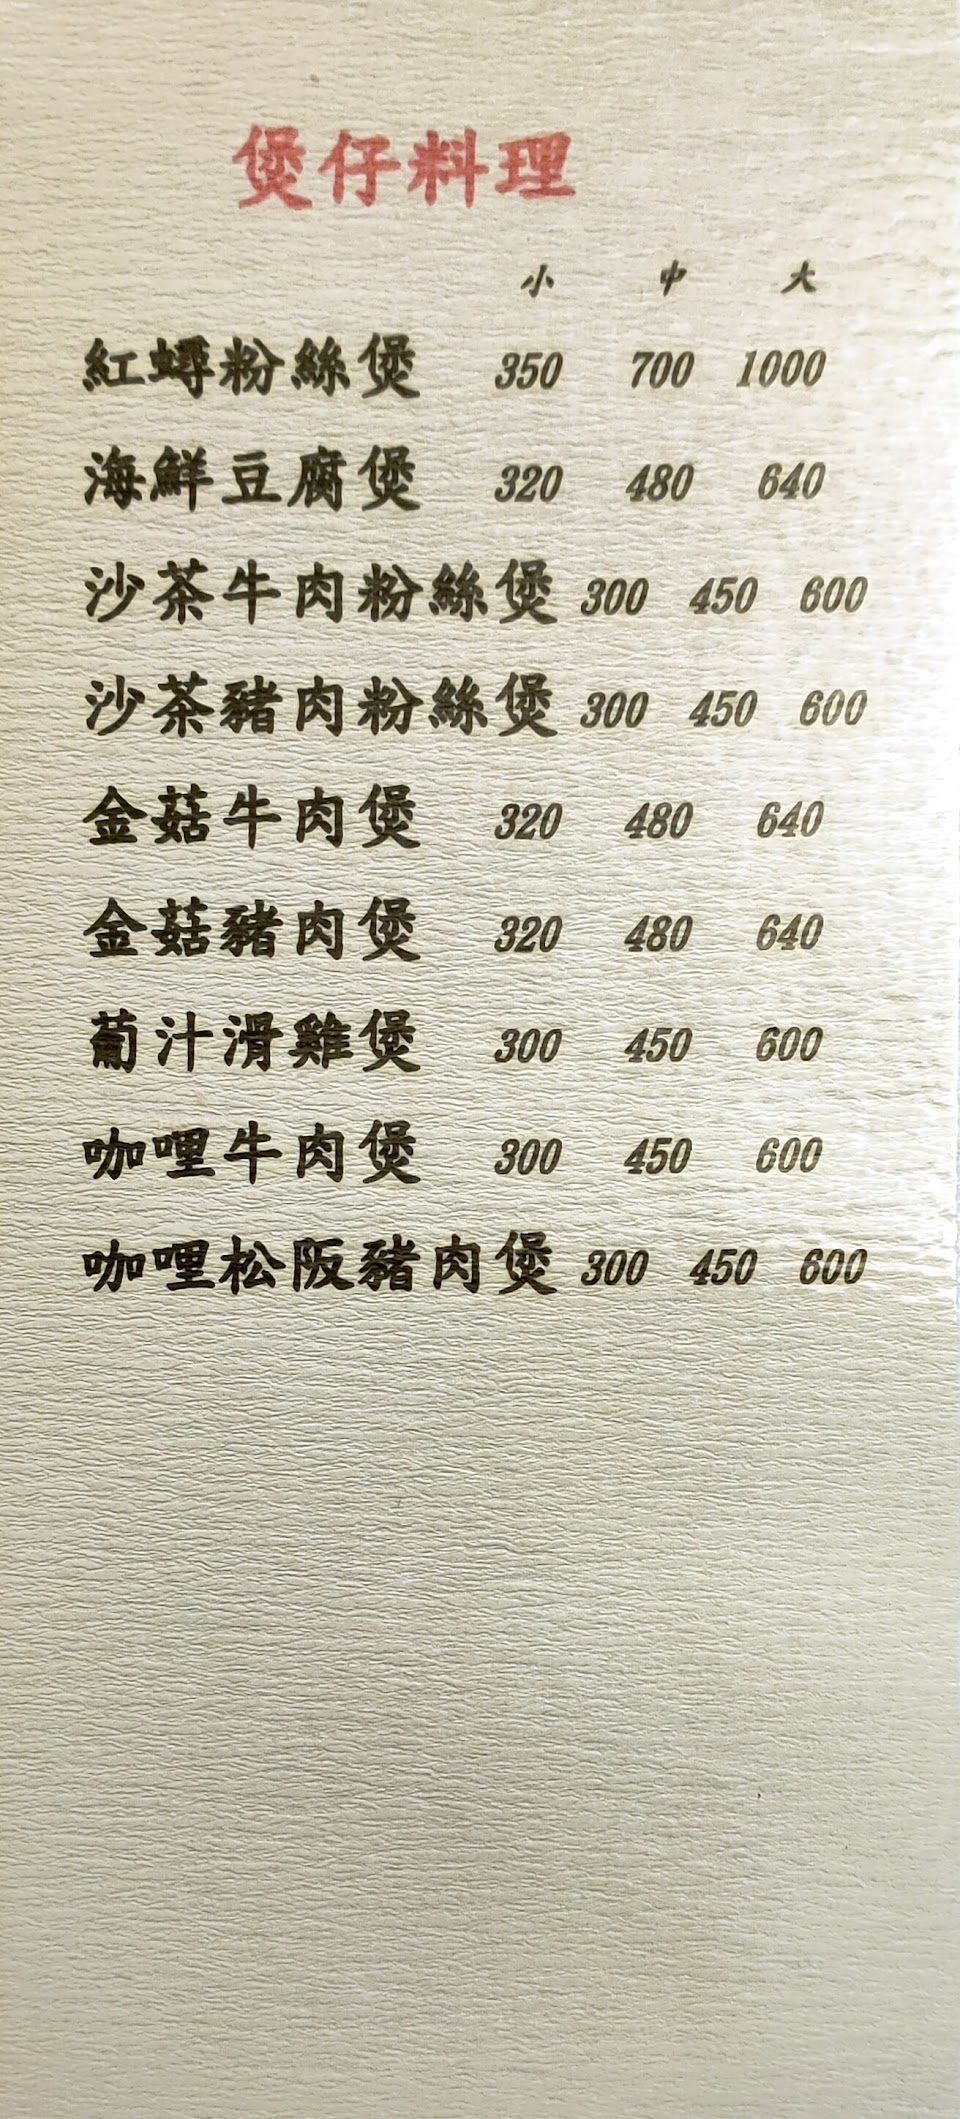 煲仔料理
小 中 大
紅蟳粉絲煲 350 700 1000
海鮮豆腐煲 320 480 640
沙茶牛肉粉絲煲 300 450 600
沙茶豬肉粉絲煲 300 450 600
金菇牛肉煲 320 480 640
金菇豬肉煲 320 480 640
葡汁滑雞煲 300 450 600
咖哩牛肉煲 300 450 600
咖哩松阪豬肉煲 300 450 600